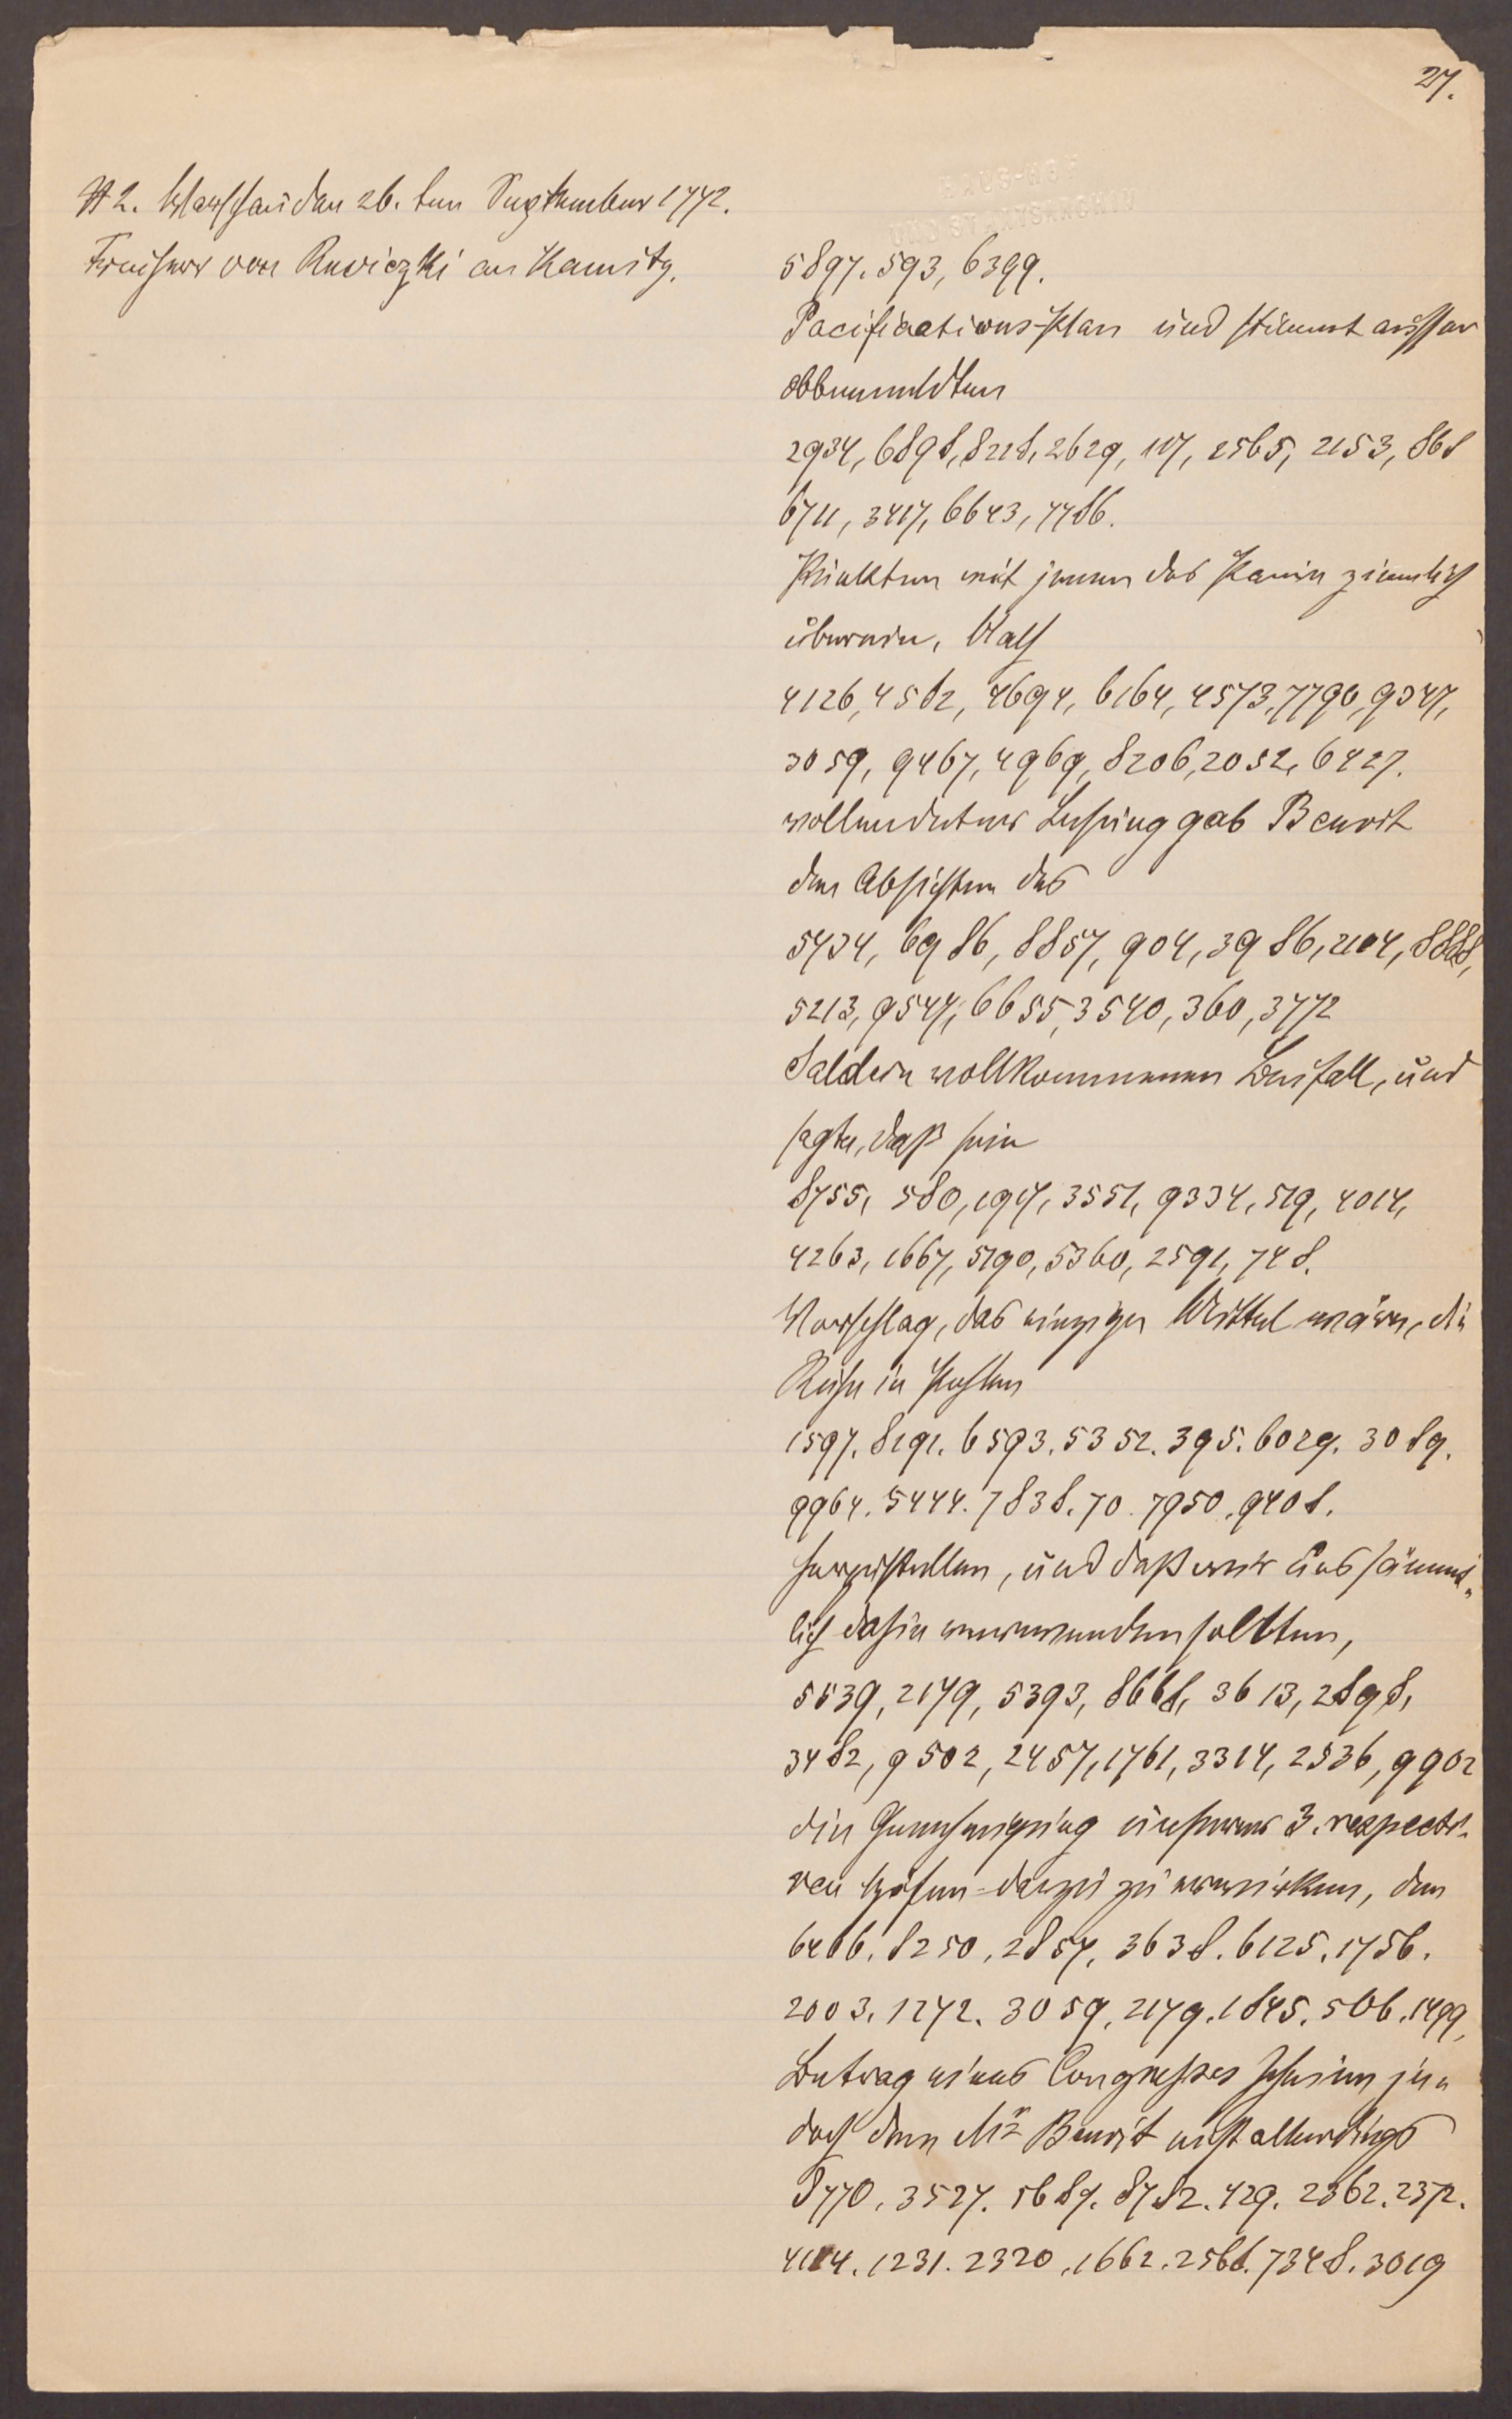 27.
# 2. Warschau den 26. ten September 1772.
Freiherr von Reviczki an Kaunitz.
5897. 593, 6399.
Pacifications-Plan und stimmt ausser
obbemeldten
2934, 6898, 8218, 2629, 107, 2565, 2153, 868
6711, 3417, 6643, 7786.
Punkten mit jenen des Panin ziemlich
überein. Nach
4126, 4582, 4694, 6164, 4573, 7790, 9347,
3059, 9467, 4969, 8206, 2032, 6427.
vollendeter Lesung gab Benoit
den Absichten des
5434, 6986, 8857, 904, 3986, 2104, 8888,
5213, 9547, 6655, 3540, 360, 3772
Saldern vollkommenen Beifall, und
sagte, daß sein
8755, 580, 1917, 3551, 9334, 519, 4014,
4263, 1667, 5190, 5360, 2591, 748.
Vorschlag, das einzige Mittel wäre, die
Ruhe in Pohlen
1597. 8191. 6593. 5352. 395. 6029. 3089.
9964. 5444. 7838. 70. 7950. 9408.
herzustellen, und daß wir uns sämmt„
lich dahin verwenden sollten,
5539, 2179, 5393, 8668, 3613, 2898,
3482, 9502, 2457, 1761, 3314, 2536, 9902
die Genehmigung unserer 3. respecti„
ven Höfen dazu zu erwirken, den
6466. 8250. 2857. 3638. 6125. 1756.
2003. 1272. 3059. 2179. 1845. 506. 1499,
Antrag eines Congresses schien je„
doch dem Mr Benoit nicht allerdings
8770. 3527. 5687. 8782. 429. 2362. 2372.
4114. 1231. 2320. 1662. 2568. 7348. 3019